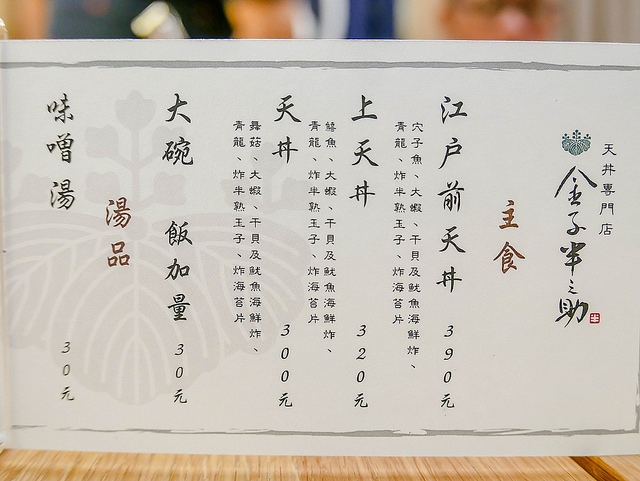 天丼專門店
金子半之助
主食
江戶前天丼 390元
穴子魚、大蝦、干貝及魷魚海鮮炸、
青龍、炸半熟玉子、炸海苔片
上天丼 320元
鱚魚、大蝦、干貝及魷魚海鮮炸、
青龍、炸半熟玉子、炸海苔片
天丼 300元
舞菇、大蝦、干貝及魷魚海鮮炸、
青龍、炸半熟玉子、炸海苔片
大碗 飯加量 30元
湯品
味噌湯 30元